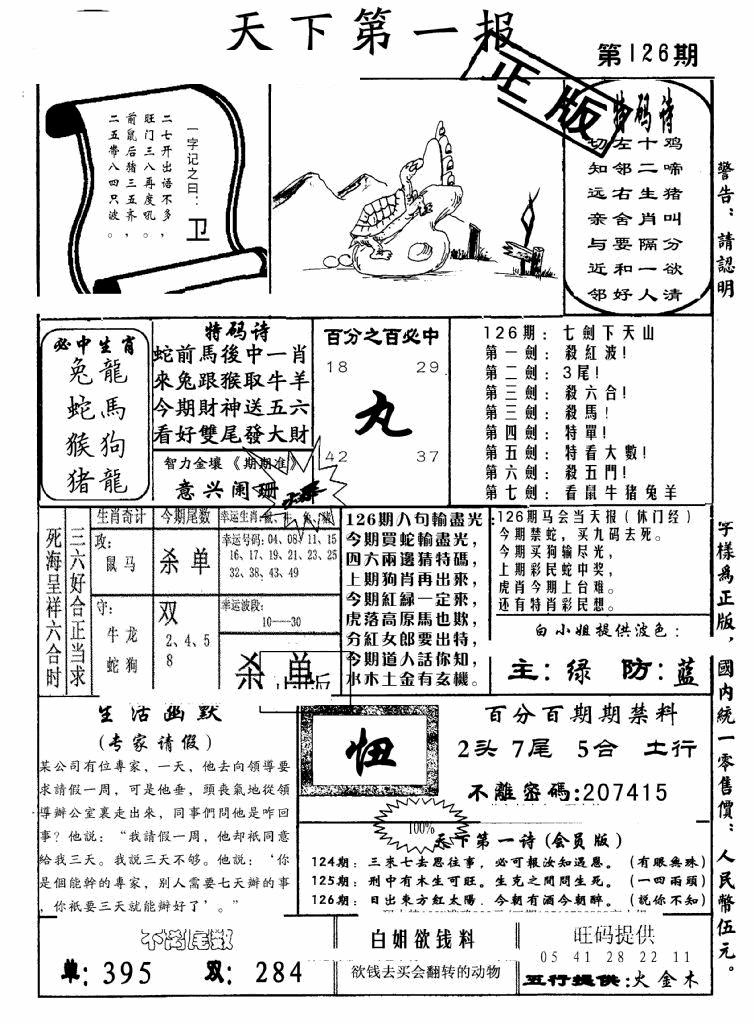 天下第一报
第126期
正版
一字记之曰：卫
二七开出语不多，
旺门三八再度吼。
前鼠后猪三五齐，
二五带八四只波。
特码诗
鸡啼猪叫分欲清
十二生肖隔一人
左邻右舍要和好
切知远亲与近邻
警告：請認明
字樣為正版，國内統一零售價：人民幣伍元。
必中生肖
兔龍
蛇馬
猴狗
猪龍
特码诗
蛇前馬後中一肖
來兔跟猴取牛羊
今期財神送五六
看好雙尾發大財
智力金壤《期期准》
意兴阑珊
百分之百必中
18 29
丸
42 37
126期：七劍下天山
第一劍：殺紅波！
第二劍：3尾！
第三劍：殺六合！
第三劍：殺馬！
第四劍：特單！
第五劍：特看大數！
第六劍：殺五門！
第七劍：看鼠牛猪兔羊
死海呈祥六合时
三六好合正当求
生肖奇计
攻：
鼠马
守：
牛龙
蛇狗
今期尾数
杀单
双
2、4、5
8
幸运号码：04、08、11、15
16、17、19、21、23、25
32、38、43、49
幸运波段：
10—30
杀单
126期八句輸盡光
今期買蛇輸盡光，
四六兩邊猜特碼，
上期狗肖再出來，
今期紅緑一定來，
虎落高原馬也欺，
分紅女郎要出特，
今期道人話你知，
水木土金有玄機。
126期马会当天报（休门经）
今期禁蛇，买九码去死。
今期买狗输尽光，
上期彩民蛇中奖，
虎肖今期上台难。
还有特肖彩民想。
白小姐提供波色：
主：绿 防：蓝
生活幽默
（专家请假）
某公司有位專家，一天，他去向領導要
求請假一周，可是他垂，頭喪氣地從領
導辦公室裏走出來，同事們問他是咋回
事？他說：“我請假一周，他却衹同意
給我三天。我説三天不够。他說：‘你
是個能幹的專家，別人需要七天辦的事
，你衹要三天就能辦好了’。”
忸
百分百期期禁料
2头 7尾 5合 土行
不離密碼:207415
100%
天下第一诗(会员版)
124期：三來七去思往事，必可報汝知遇恩。（有眼無珠）
125期：刑中有木生可旺。生克之間問生死。（一四兩頭）
126期：日出東方紅太陽．今朝有酒今朝醉。（説你不知）
单: 395 双: 284
白姐欲钱料
欲钱去买会翻转的动物
旺码提供
05 41 28 22 11
五行提供:火金木